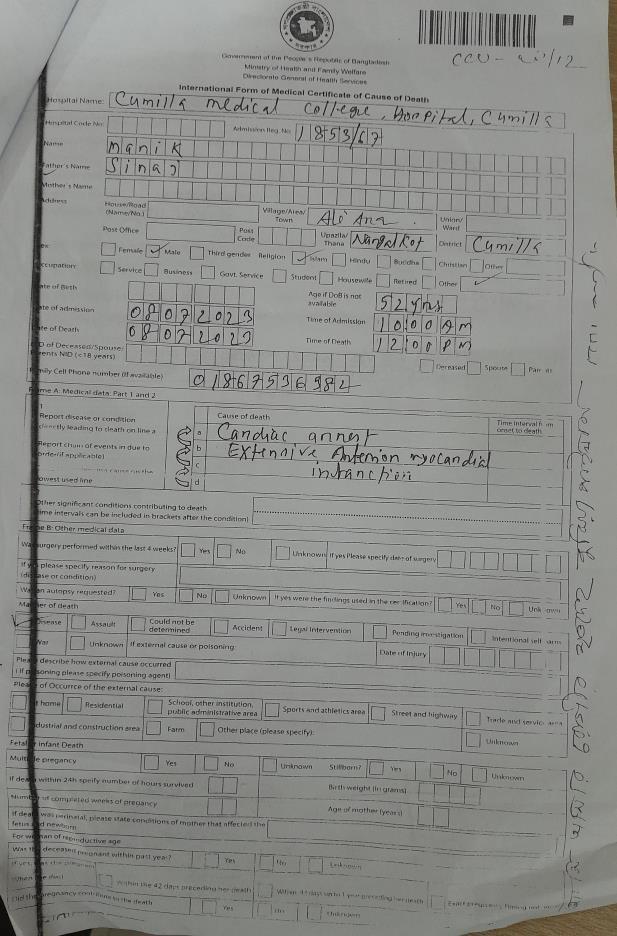 CCU
Government of the People's Republic of Bangladesh
Ministry of Health and Family Welfare
Directorate General of Health Services
International Form of Medical Certificate of Cause of Death
Hospital Name: Cumilla medical college, Hospital, Cumilla
Hospital Code No: Admission Reg. No: 18553/67
Name Manik
Father's Name
Mother's Name
Address House/Road (Name/No.) Village/Area/ Town Union/ Ward
Post Office Post Code Upazila/ Thana Nangalkot District Cumilla
Female Male Third gender Religion Islam Hindu Buddha Christian Other
Occupation: Service Business Govt. Service Student Housewife Retired Other
Date of Birth Age if DoB is not available 52 yrs
Date of admission 08072023 Time of Admission 1000 AM
Date of Death 08072023 Time of Death 1200 PM
ID of Deceased/Spouse/ Parents NID (<18 years) Deceased Spouse
Family Cell Phone number (if available)
Frame A: Medical data: Part 1 and 2
1
Report disease or condition directly leading to death on line a
Cause of death Time interval from onset to death
a Cardiac arrest
Report chain of events in due to order(if applicable)
b Extensive Anterior myocardial
c infarction
lowest used line d
Other significant conditions contributing to death
(time intervals can be included in brackets after the condition)
Frame B: Other medical data
Was surgery performed within the last 4 weeks? Yes No Unknown If yes Please specify date of surgery
If yes please specify reason for surgery (disease or condition)
Was an autopsy requested? Yes No Unknown If yes were the findings used in the certification? Yes No Unknown
Manner of death
Disease Assault Could not be determined Accident Legal Intervention Pending investigation Intentional self harm
War Unknown If external cause or poisoning: Date of Injury
Please describe how external cause occurred
(If poisoning please specify poisoning agent)
Place of Occurrce of the external cause:
At home Residential School, other institution, public administrative area Sports and athletics area Street and highway Trade and service area
Industrial and construction area Farm Other place (please specify): Unknown
Fetal or Infant Death
Multiple pregancy Yes No Unknown Stillborn? Yes No Unknown
If death within 24h speify number of hours survived Birth weight (in grams)
Number of completed weeks of pregancy Age of mother (years)
If death was perinatal, please state conditions of mother that affected the fetus and newborn
For woman of reproductive age
Was the deceased pregnant within past year? Yes No Unknown
Within the 42 days preceding her death
Did the pregnancy contribute to the death Yes No Unknown